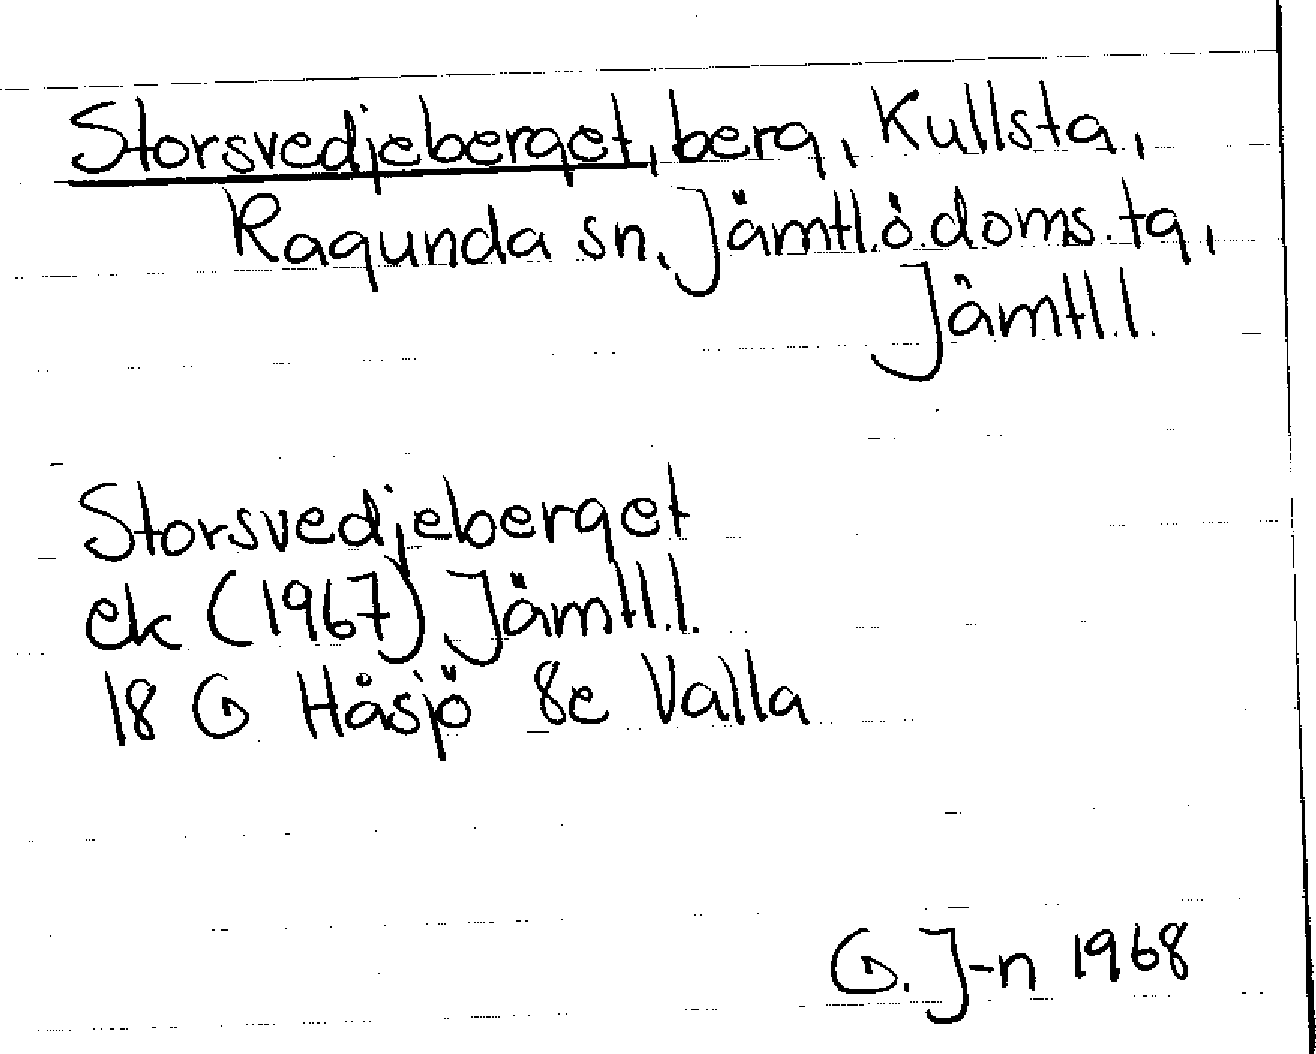 Storsvedjeberget, berg, Kullsta,
Ragunda sn, Jämtl.ö.doms.tg,
Jämtl.l.
Storsvedjeberget
ek (1967) Jämtl.l.
18 G Håsjö 8e Valla
G. J-n 1968